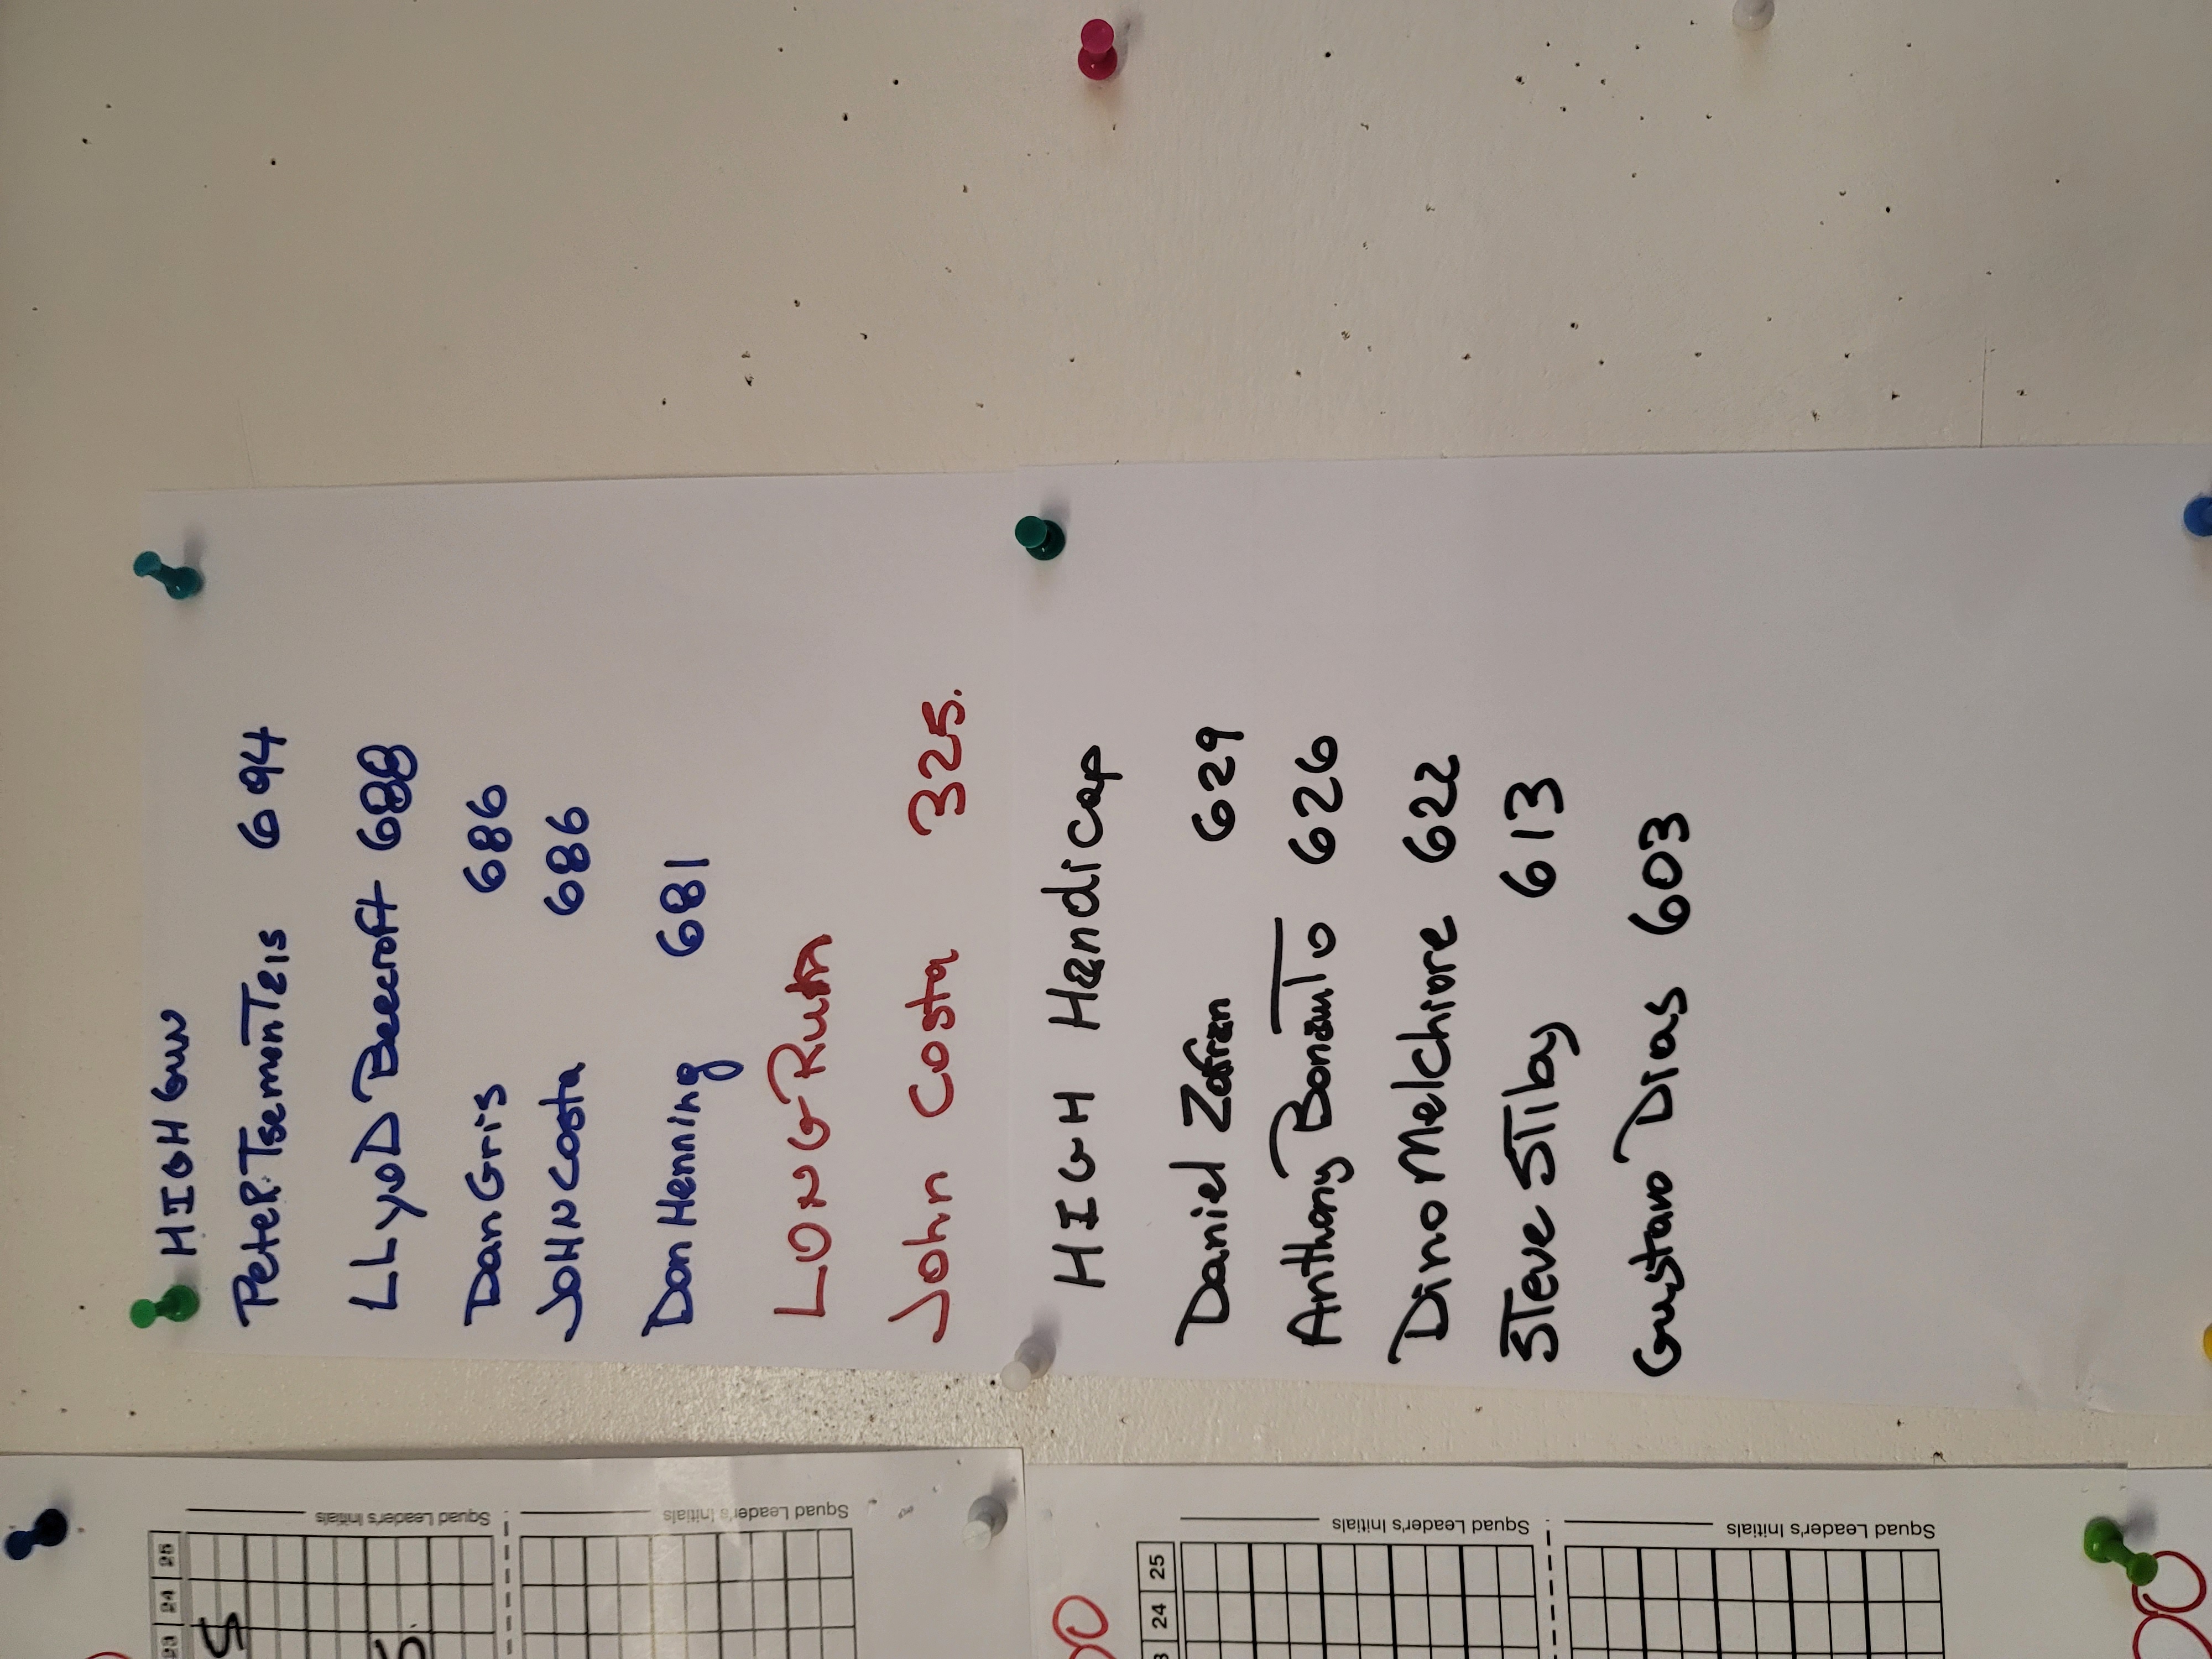 HIGH Gun
PeteR Tsemonteis 694
LLyoD Beecroft 688
Dan Gris 686
JoHN Costa 686
Don Henning 681
LONG Run
John Costa 325.
HIGH Handicap
Daniel Zofran 629
Anthony Bonauto 626
Dino Melchiore 622
STeve STilby 613
Gustavo Dias 603
Squad Leader's Initials
Squad Leader's Initials
Squad Leader's Initials
Squad Leader's Initials
23 24 25
24 25